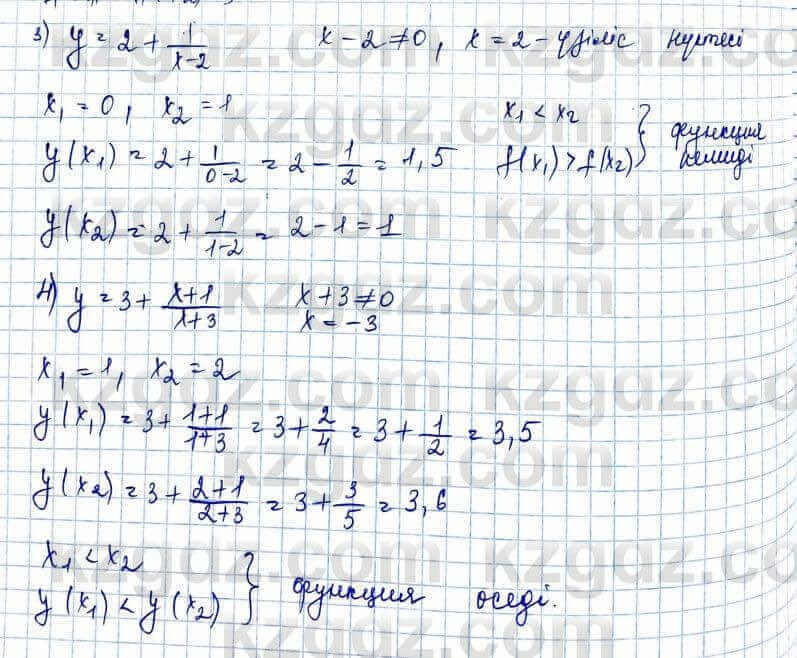 3) y = 2 + 1/(x-2)   x - 2 ≠ 0, x = 2 - үзіліс нүктесі
x₁ = 0, x₂ = 1   x₁ < x₂
y(x₁) = 2 + 1/(0-2) = 2 - 1/2 = 1,5   f(x₁) > f(x₂) } функция кемиді
y(x₂) = 2 + 1/(1-2) = 2 - 1 = 1
4) y = 3 + (x+1)/(x+3)   x + 3 ≠ 0
x = -3
x₁ = 1, x₂ = 2
y(x₁) = 3 + (1+1)/(1+3) = 3 + 2/4 = 3 + 1/2 = 3,5
y(x₂) = 3 + (2+1)/(2+3) = 3 + 3/5 = 3,6
x₁ < x₂
y(x₁) < y(x₂) } функция өседі.
kzgdz.com